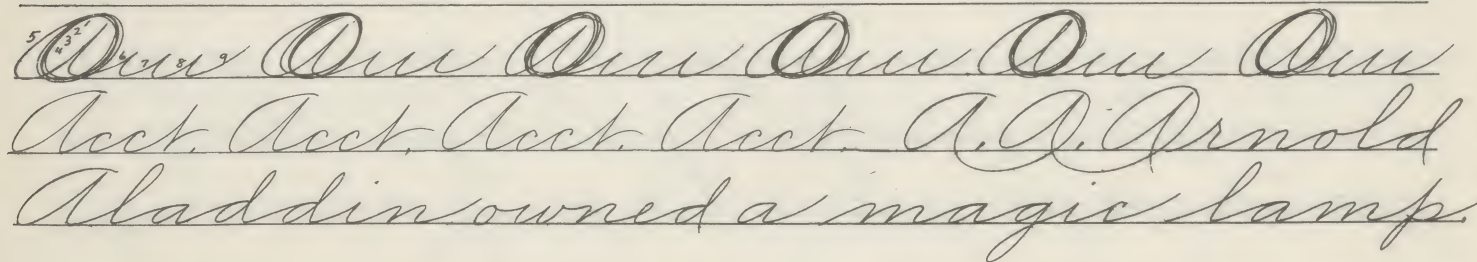 5 4 3 2 1 6 7 8 9
Acct. Acct. Acct. Acct. A. A. Arnold
Aladdin owned a magic lamp.